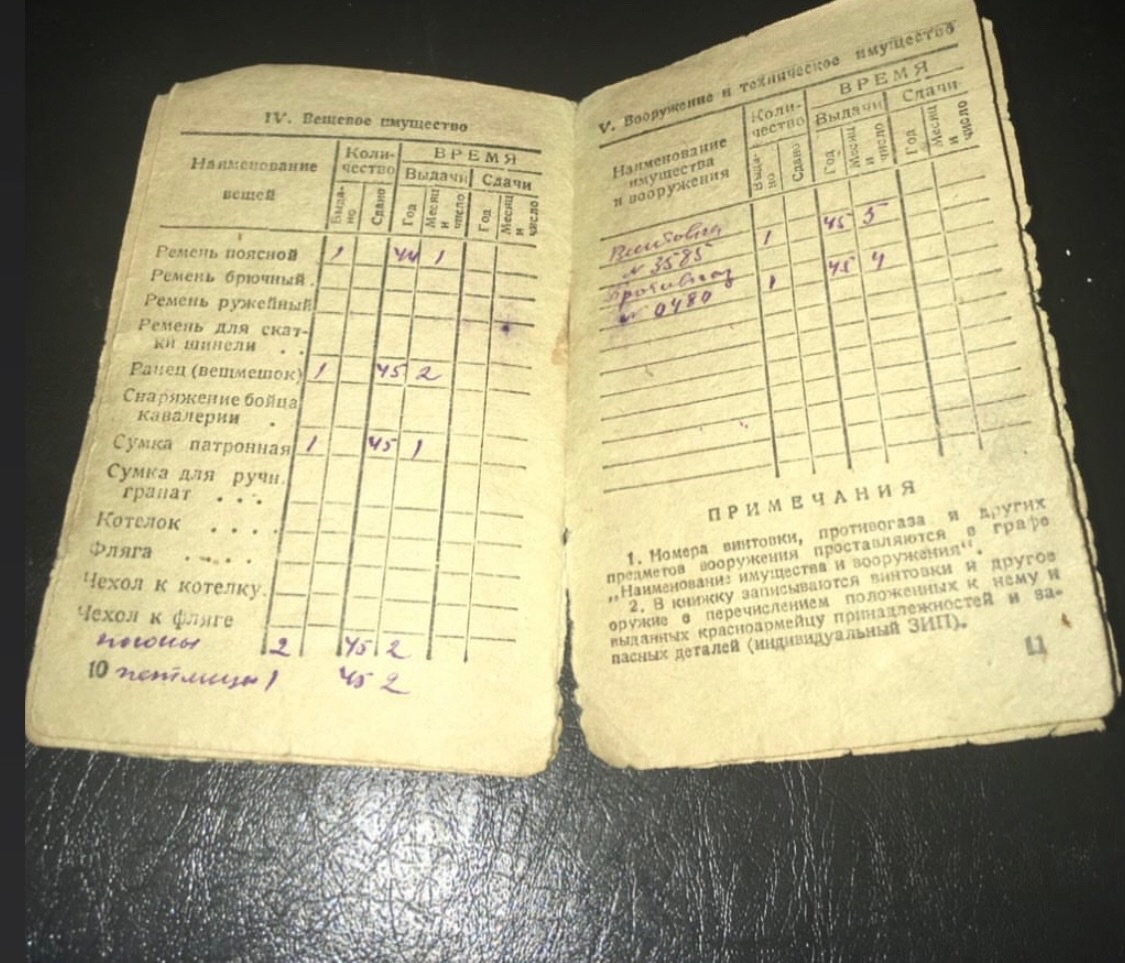 IV. Вещевое имущество
Наименование вещей
Коли-
чество
ВРЕМЯ
Выдачи
Сдачи
Выда-
но
Сдано
Год
Месяц
и
число
Год
Месяц
и
число
Ремень поясной 1 44 1
Ремень брючный .
Ремень ружейный
Ремень для скат-
ки шинели . .
Ранец (вещмешок) 1 45 2
Снаряжение бойца
кавалерии .
Сумка патронная 1 45 1
Сумка для ручн.
гранат . . .
Котелок . . . .
Фляга . . . .
Чехол к котелку.
Чехол к фляге
погоны 2 45 2
10 петлицы 1 45 2
V. Вооружение и техническое имущество
Наименование
имущества
и вооружения
Коли-
чество
ВРЕМЯ
Выдачи
Сдачи
Выда-
но
Сдано
Год
Месяц
и
число
Год
Месяц
и
число
Винтовка 1 45 5
№ 3585
Противогаз 1 45 4
№ 0480
ПРИМЕЧАНИЯ
1. Номера винтовки, противогаза и других
предметов вооружения проставляются в графе
„Наименование имущества и вооружения“.
2. В книжку записываются винтовки и другое
оружие с перечислением положенных к нему и
выданных красноармейцу принадлежностей и за-
пасных деталей (индивидуальный ЗИП).
11